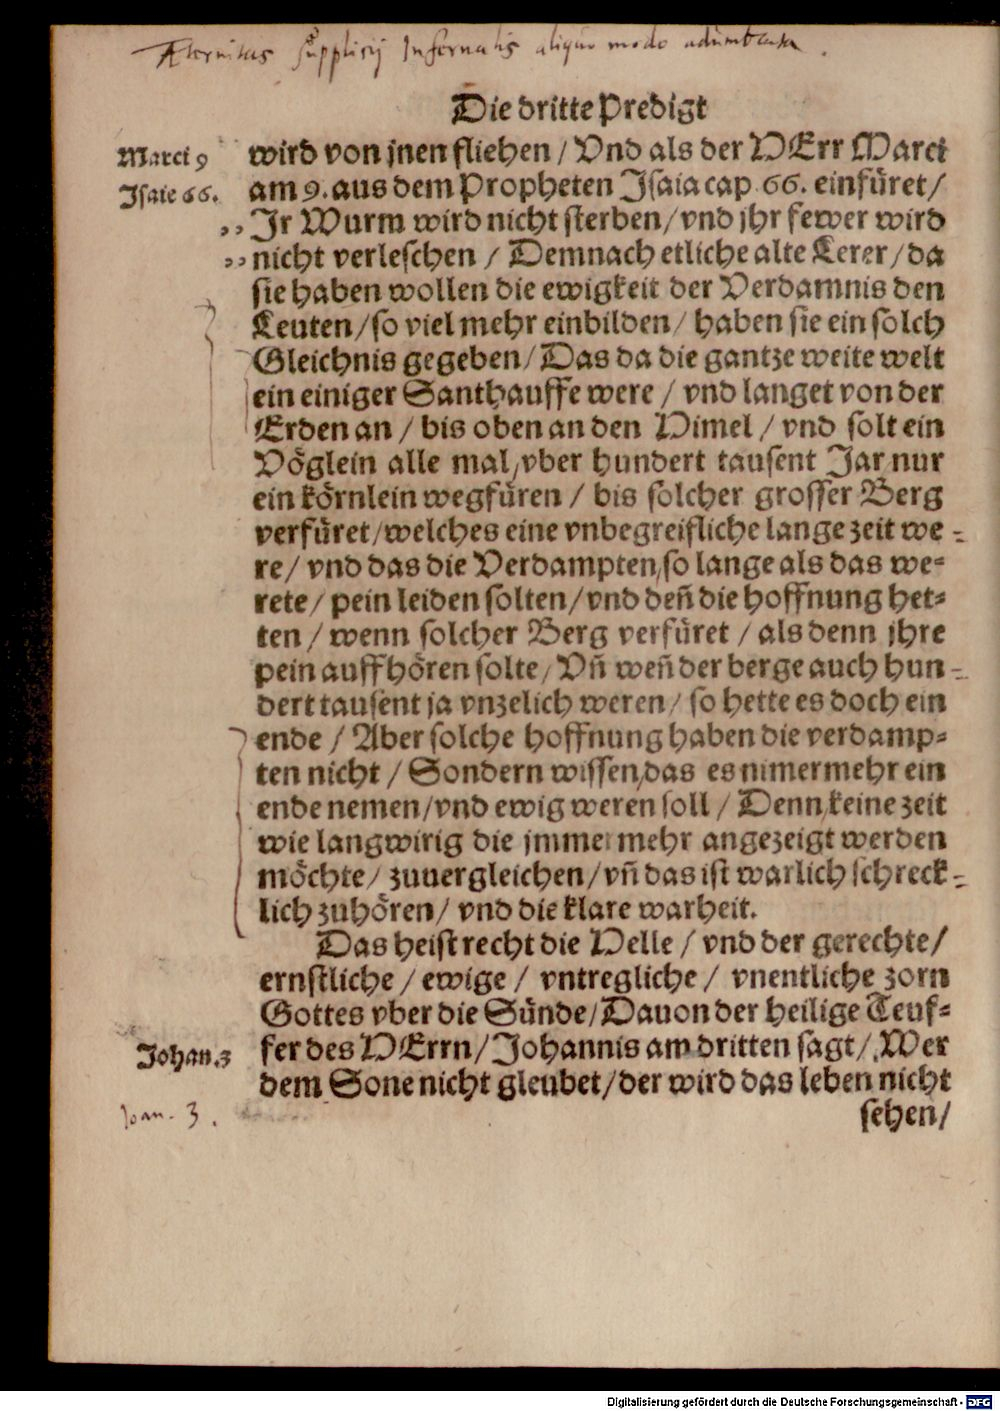 Æternitas supplicij Infernalis aliquo modo adumbrata.
Die dritte Predigt
Marci 9
wird von jnen fliehen / Vnd als der HErr Marci
Isaie 66.
am 9. aus dem Propheten Isaia cap 66. einfüret /
„ Ir Wurm wird nicht sterben / vnd jhr fewer wird
„ nicht verleschen / Demnach etliche alte Lerer / da
sie haben wollen die ewigkeit der Verdamnis den
Leuten / so viel mehr einbilden / haben sie ein solch
Gleichnis gegeben / Das da die gantze weite welt
ein einiger Santhauffe were / vnd langet von der
Erden an / bis oben an den Himel / vnd solt ein
Vöglein alle mal / vber hundert tausent Jar / nur
ein körnlein wegfüren / bis solcher grosser Berg
verfüret / welches eine vnbegreifliche lange zeit we-
re / vnd das die Verdampten / so lange als das we-
rete / pein leiden solten / vnd deñ die hoffnung het-
ten / wenn solcher Berg verfüret / als denn jhre
pein auffhören solte / Vñ weñ der berge auch hun-
dert tausent ja vnzelich weren / so hette es doch ein
ende / Aber solche hoffnung haben die verdamp-
ten nicht / Sondern wissen / das es nimermehr ein
ende nemen / vnd ewig weren soll / Denn keine zeit
wie langwirig die jmmermehr angezeigt werden
möchte / zuuergleichen / vñ das ist warlich schreck-
lich zuhören / vnd die klare warheit.
Das heist recht die Helle / vnd der gerechte /
ernstliche / ewige / vntregliche / vnentliche zorn
Gottes vber die Sünde / Dauon der heilige Teuf-
Johan. 3
fer des HErrn / Johannis am dritten sagt / Wer
dem Sone nicht gleubet / der wird das leben nicht
Joan. 3.
sehen /
Digitalisierung gefördert durch die Deutsche Forschungsgemeinschaft - DFG